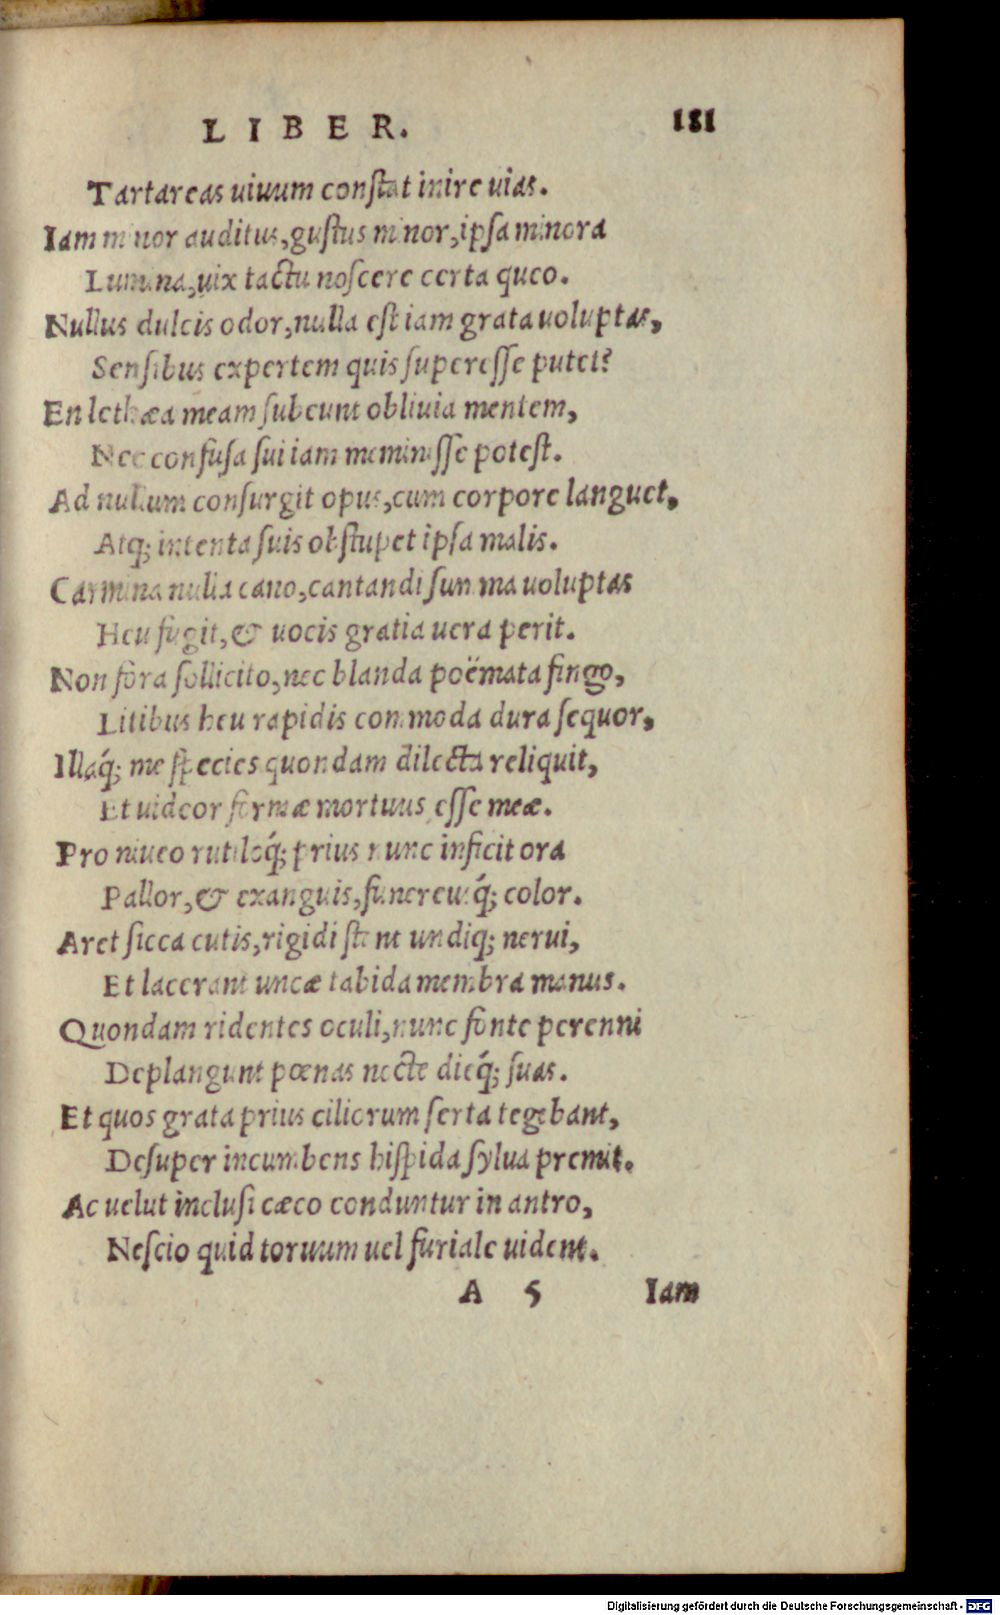 LIBER. 181
Tartareas uiuum constat inire uias.
Iam minor auditus, gustus minor, ipsa minora
Lumina, uix tactu noscere certa queo.
Nullus dulcis odor, nulla est iam grata uoluptas,
Sensibus expertem quis superesse putet?
En lethæa meam subeunt obliuia mentem,
Nec confusa sui iam meminisse potest.
Ad nullum consurgit opus, cum corpore languet,
Atq; intenta suis obstupet ipsa malis.
Carmina nulla cano, cantandi summa uoluptas
Heu fugit, & uocis gratia uera perit.
Non fora sollicito, nec blanda poëmata fingo,
Litibus heu rapidis commoda dura sequor,
Illaq́; me species quondam dilecta reliquit,
Et uideor formæ mortuus esse meæ.
Pro niueo rutiloq́; prius nunc inficit ora
Pallor, & exanguis, funereusq́; color.
Aret sicca cutis, rigidi stant undiq; nerui,
Et lacerant uncæ tabida membra manus.
Quondam ridentes oculi, nunc fonte perenni
Deplangunt pœnas nocte dieq́; suas.
Et quos grata prius ciliorum serta tegebant,
Desuper incumbens hispida sylua premit.
Ac uelut inclusi cæco conduntur in antro,
Nescio quid toruum uel furiale uident.
A 5 Iam
Digitalisierung gefördert durch die Deutsche Forschungsgemeinschaft - DFG